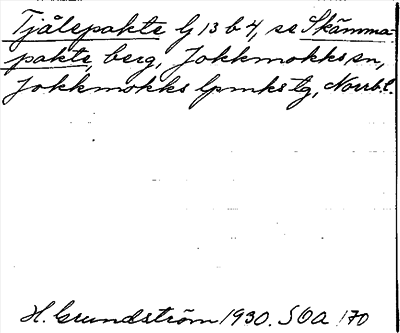 Tjålepakte G 13 b 4, se Skämma-
pakte, berg, Jokkmokks sn,
Jokkmokks lpmks tg, Norrb. l.
H. Grundström 1930. SOA 170